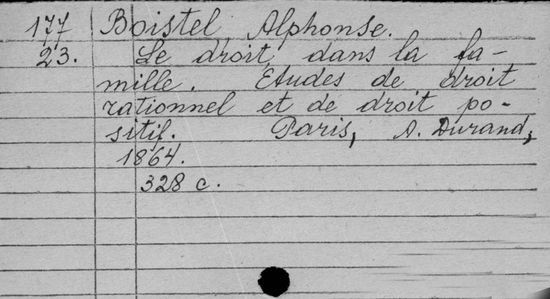 177 Boistel Alphonse.
23. Le droit dans la fa-
mille. Etudes de droit
rationnel et de droit po-
sitif. Paris, A. Durand,
1864.
328 c.